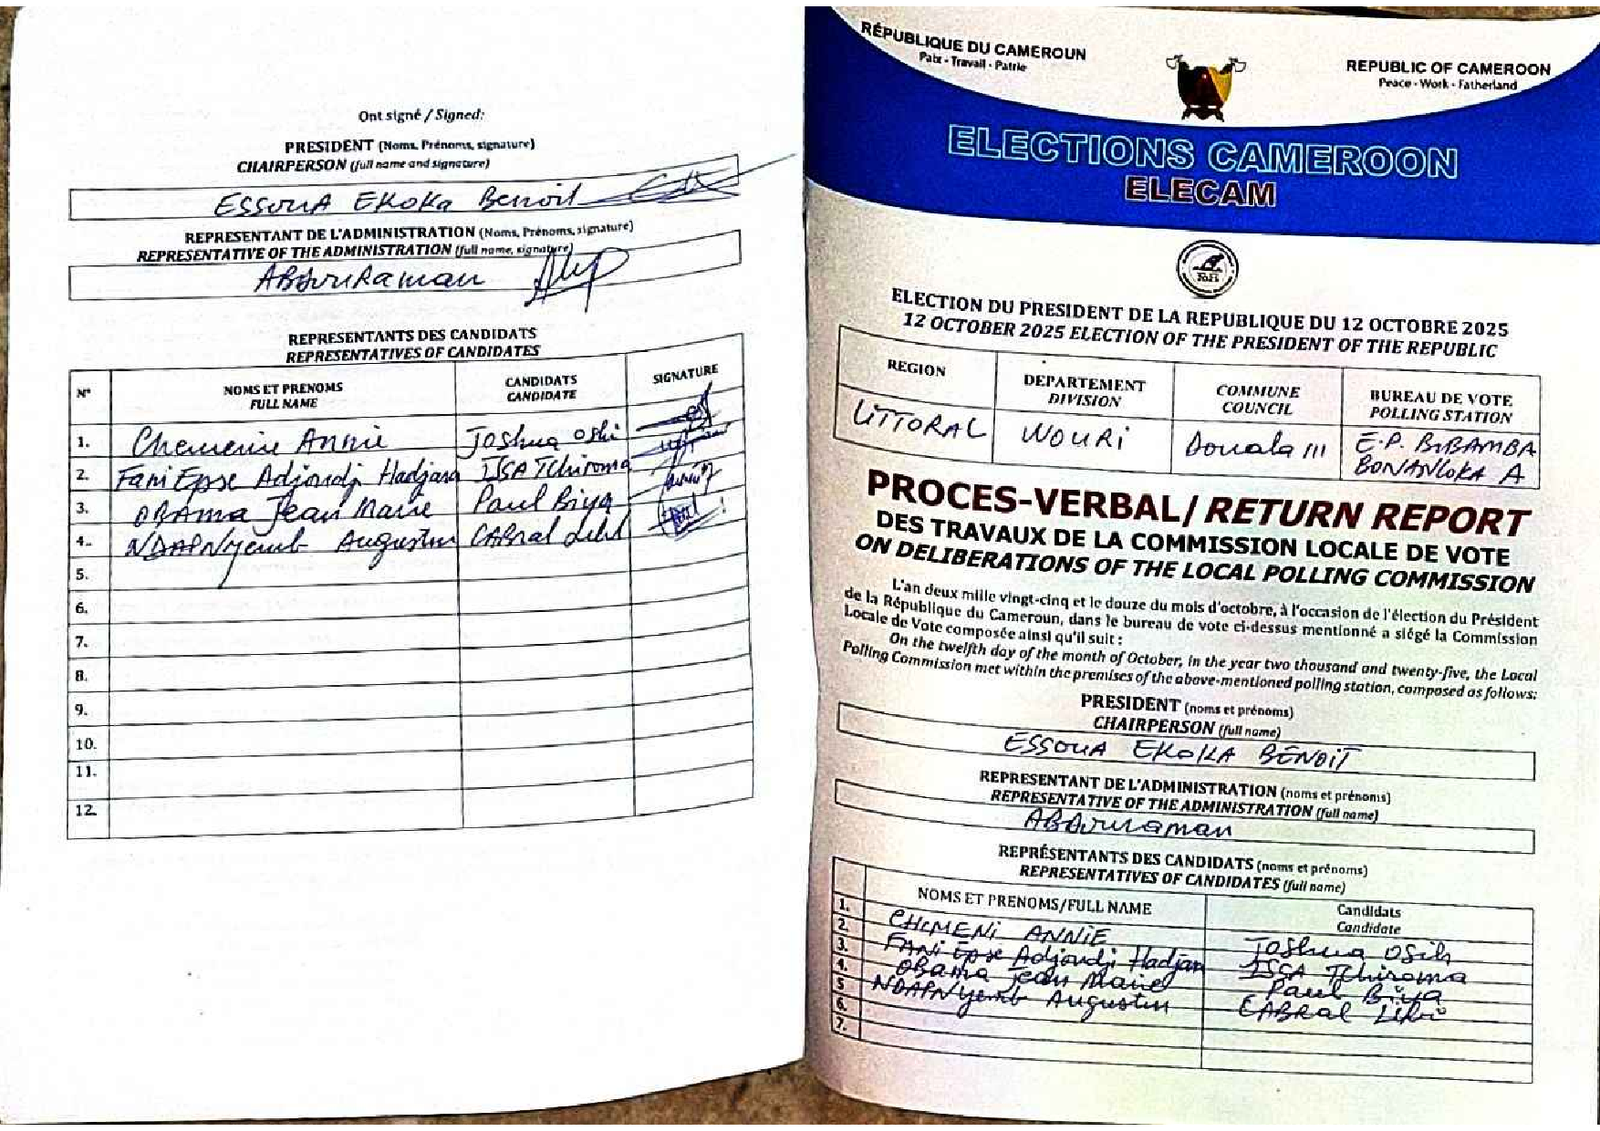 Ont signé / Signed:
PRESIDENT (Noms, Prénoms, signature)
CHAIRPERSON (full name and signature)
ESSOUA EKOKA Benoit
REPRESENTANT DE L'ADMINISTRATION (Noms, Prénoms, signature)
REPRESENTATIVE OF THE ADMINISTRATION (full name, signature)
ABDouRaman
REPRESENTANTS DES CANDIDATS
REPRESENTATIVES OF CANDIDATES
N° NOMS ET PRENOMS FULL NAME CANDIDATS CANDIDATE SIGNATURE
1. Chemenie Annie Joshua Oshi
2. Fani Epse Adjoudji Hadjara ISSA Tchiroma
3. OBAma Jean Marie Paul Biya
4. NDAPNyemb Augustin CABral
5.
6.
7.
8.
9.
10.
11.
12.
RÉPUBLIQUE DU CAMEROUN
Paix - Travail - Patrie
REPUBLIC OF CAMEROON
Peace - Work - Fatherland
ELECTIONS CAMEROON
ELECAM
ELECTION DU PRESIDENT DE LA REPUBLIQUE DU 12 OCTOBRE 2025
12 OCTOBER 2025 ELECTION OF THE PRESIDENT OF THE REPUBLIC
REGION DEPARTEMENT DIVISION COMMUNE COUNCIL BUREAU DE VOTE POLLING STATION
LITTORAL WOURI Douala III E.P. BIBAMBA
BONANLOKA A
PROCES-VERBAL/ RETURN REPORT
DES TRAVAUX DE LA COMMISSION LOCALE DE VOTE
ON DELIBERATIONS OF THE LOCAL POLLING COMMISSION
L'an deux mille vingt-cinq et le douze du mois d'octobre, à l'occasion de l'élection du Président
de la République du Cameroun, dans le bureau de vote ci-dessus mentionné a siégé la Commission
Locale de Vote composée ainsi qu'il suit :
On the twelfth day of the month of October, in the year two thousand and twenty-five, the Local
Polling Commission met within the premises of the above-mentioned polling station, composed as follows:
PRESIDENT (noms et prénoms)
CHAIRPERSON (full name)
ESSOUA EKOKA BENOIT
REPRESENTANT DE L'ADMINISTRATION (noms et prénoms)
REPRESENTATIVE OF THE ADMINISTRATION (full name)
ABDouraman
REPRÉSENTANTS DES CANDIDATS (noms et prénoms)
REPRESENTATIVES OF CANDIDATES (full name)
NOMS ET PRENOMS/FULL NAME Candidats Candidate
1. CHEMENI ANNIE Joshua OSih
2. FANI Epse Adjoudji Hadjara ISSA Tchiroma
3. OBama Jean Marie Paul Biya
4. NDAPNyemb Augustin CABRal Libii
5
6.
7.